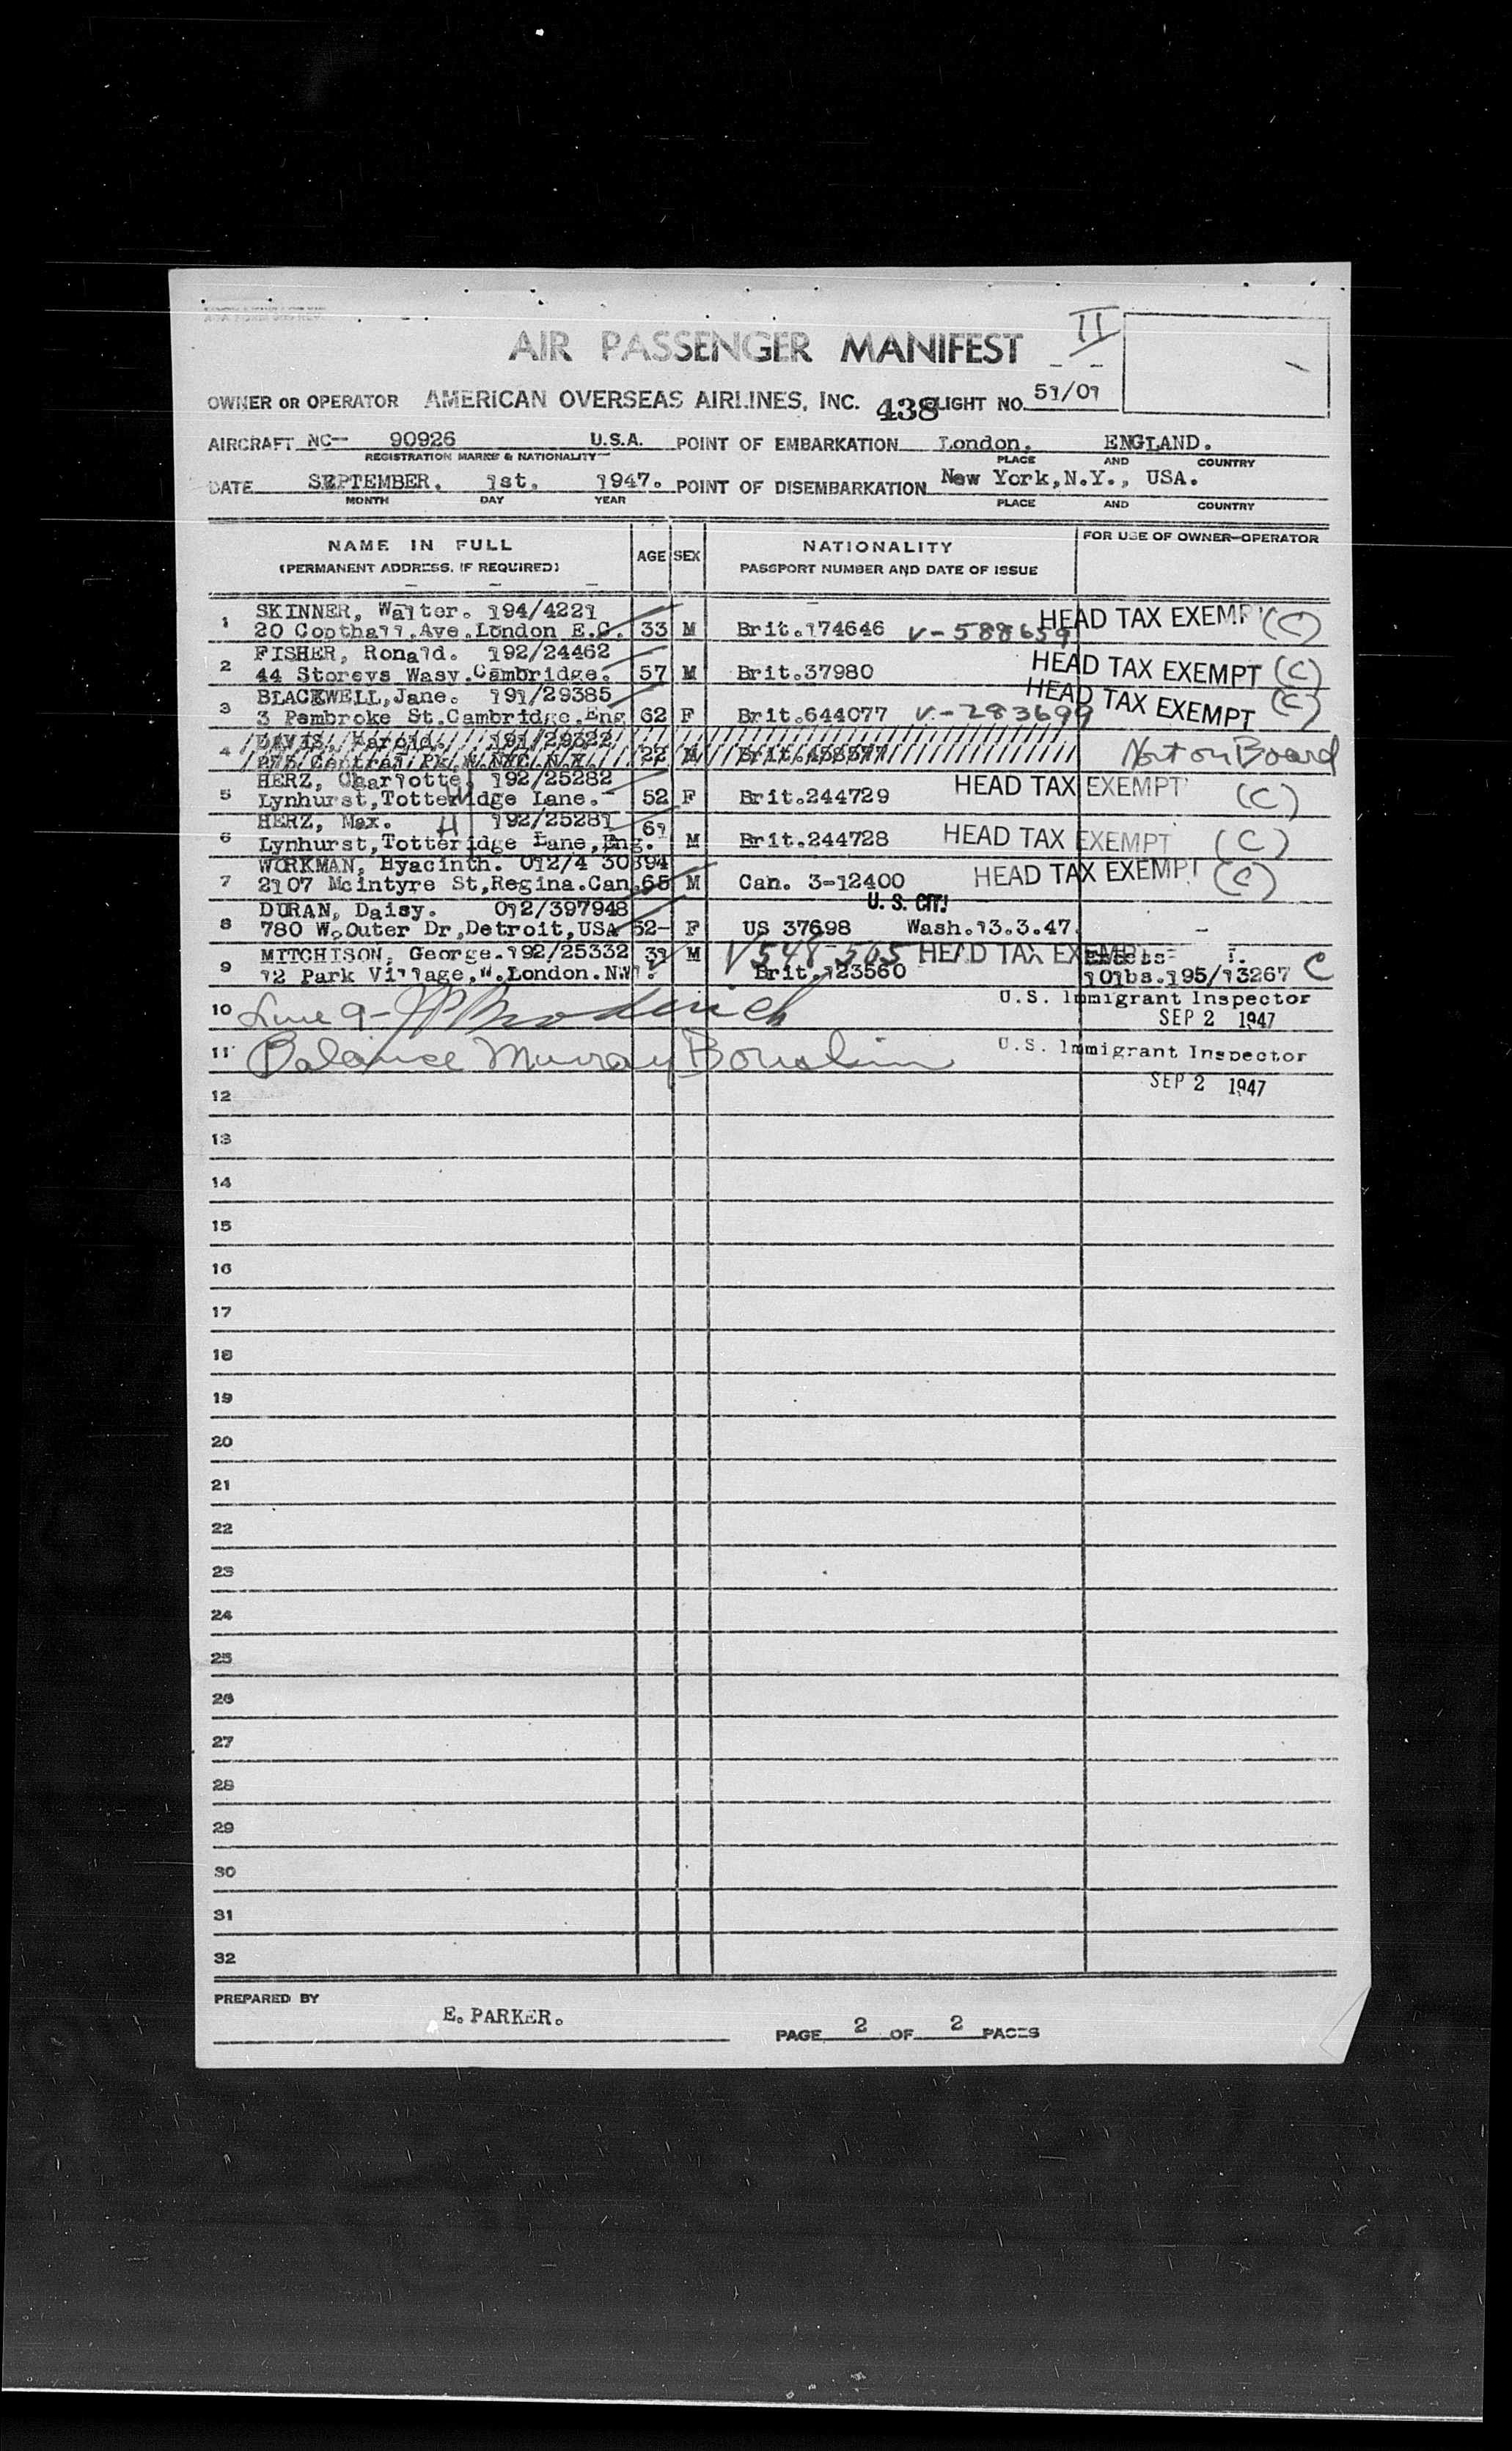 II
AIR PASSENGER MANIFEST
OWNER OR OPERATOR AMERICAN OVERSEAS AIRLINES, INC. 438 LIGHT NO. 51/01
AIRCRAFT NC- 90926 U.S.A. POINT OF EMBARKATION London. ENGLAND.
REGISTRATION MARKS & NATIONALITY PLACE AND COUNTRY
DATE SEPTEMBER. 1st. 1947. POINT OF DISEMBARKATION New York,N.Y., USA.
MONTH DAY YEAR PLACE AND COUNTRY
NAME IN FULL AGE SEX NATIONALITY FOR USE OF OWNER-OPERATOR
(PERMANENT ADDRESS, IF REQUIRED) PASSPORT NUMBER AND DATE OF ISSUE
1 SKINNER, Walter. 194/4221 HEAD TAX EXEMP (C)
20 Copthall.Ave.London E.C. 33 M Brit.174646 V-588659
2 FISHER, Ronald. 192/24462 HEAD TAX EXEMPT (C)
44 Storeys Wasy.Cambridge. 57 M Brit.37980
3 BLACKWELL,Jane. 191/29385 HEAD TAX EXEMPT (C)
3 Pembroke St.Cambridge.Eng 62 F Brit.644077 V-283699
4 DAVIS, Harold. 191/29322 Not on Board
275 Central Pk.W.NYC.N.Y. 22 M Brit.458577
5 HERZ, Charlotte H 192/25282 HEAD TAX EXEMPT (C)
Lynhurst,Totteridge Lane. 52 F Brit.244729
6 HERZ, Max. H 192/25281 61
Lynhurst,Totteridge Lane,Eng. M Brit.244728 HEAD TAX EXEMPT (C)
7 WORKMAN, Hyacinth. 012/4 30894 HEAD TAX EXEMPT (C)
2107 Mcintyre St,Regina.Can. 65 M Can. 3-12400
8 DURAN, Daisy. 012/397948 U.S. CIT.
780 W.Outer Dr,Detroit,USA 52- F US 37698 Wash.13.3.47.
9 MITCHISON, George.192/25332 31 M V548-505 HEAD TAX EXEMPT
12 Park Village,W.London.NW1. Brit.123560 101bs.195/13267 C
10 Line 9- U.S. Immigrant Inspector
SEP 2 1947
11 Balance Murray U.S. Immigrant Inspector
SEP 2 1947
12
13
14
15
16
17
18
19
20
21
22
23
24
25
26
27
28
29
30
31
32
PREPARED BY E. PARKER.
PAGE 2 OF 2 PAGES